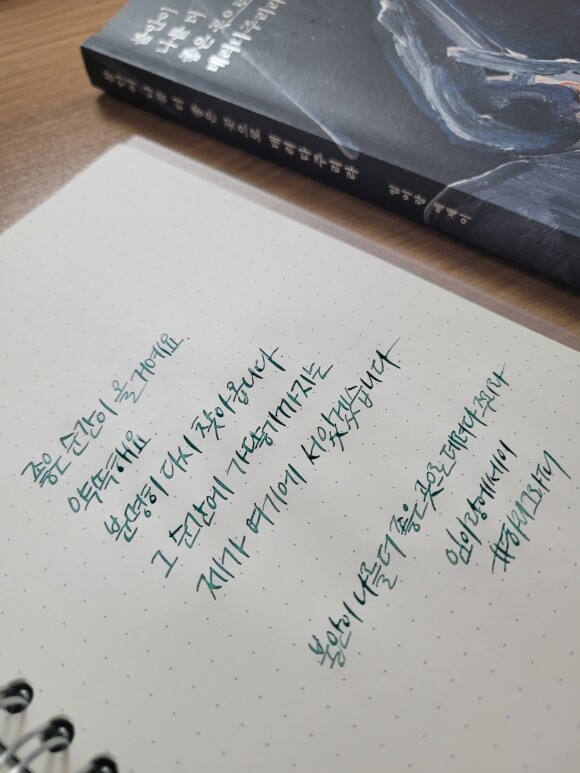 불안이
나를 더
좋은 곳으로
데려다주리라
불안이 나를 더 좋은 곳으로 데려다주리라
임이랑 에세이
좋은 순간이 올 거예요
약속해요
분명히 다시 찾아옵니다
그 순간에 가 닿기까지는
제가 여기에 서있겠습니다
불안이 나를 더 좋은 곳으로 데려다 주리라
임이랑에세이